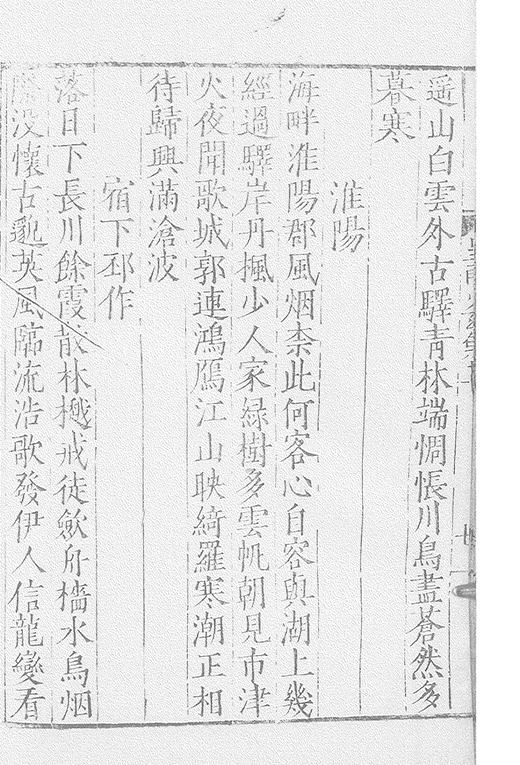 遥山白雲外古驛青林端惆悵川鳥盡蒼然多
暮寒
淮陽
海畔淮陽郡風烟柰此何客心自容與湖上幾
經過驛岸丹楓少人家緑樹多雲帆朝見市津
火夜聞歌城郭連鴻鴈江山映綺羅寒潮正相
待歸興滿滄波
宿下邳作
落日下長川餘霞散林樾戒徒斂舟檣水鳥烟
没懷古邈英風臨流浩歌發伊人信龍變看